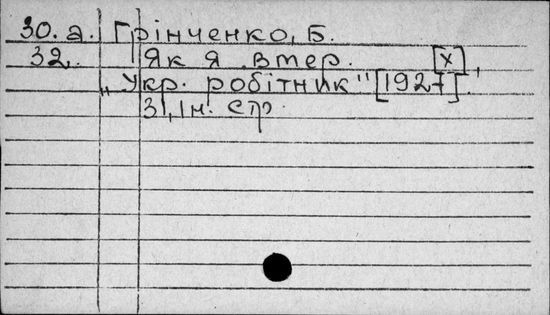 30.а. Грінченко, Б.
32. Як я втер. [х],
„Укр. робітник" [1927].
31, Iн. стр.